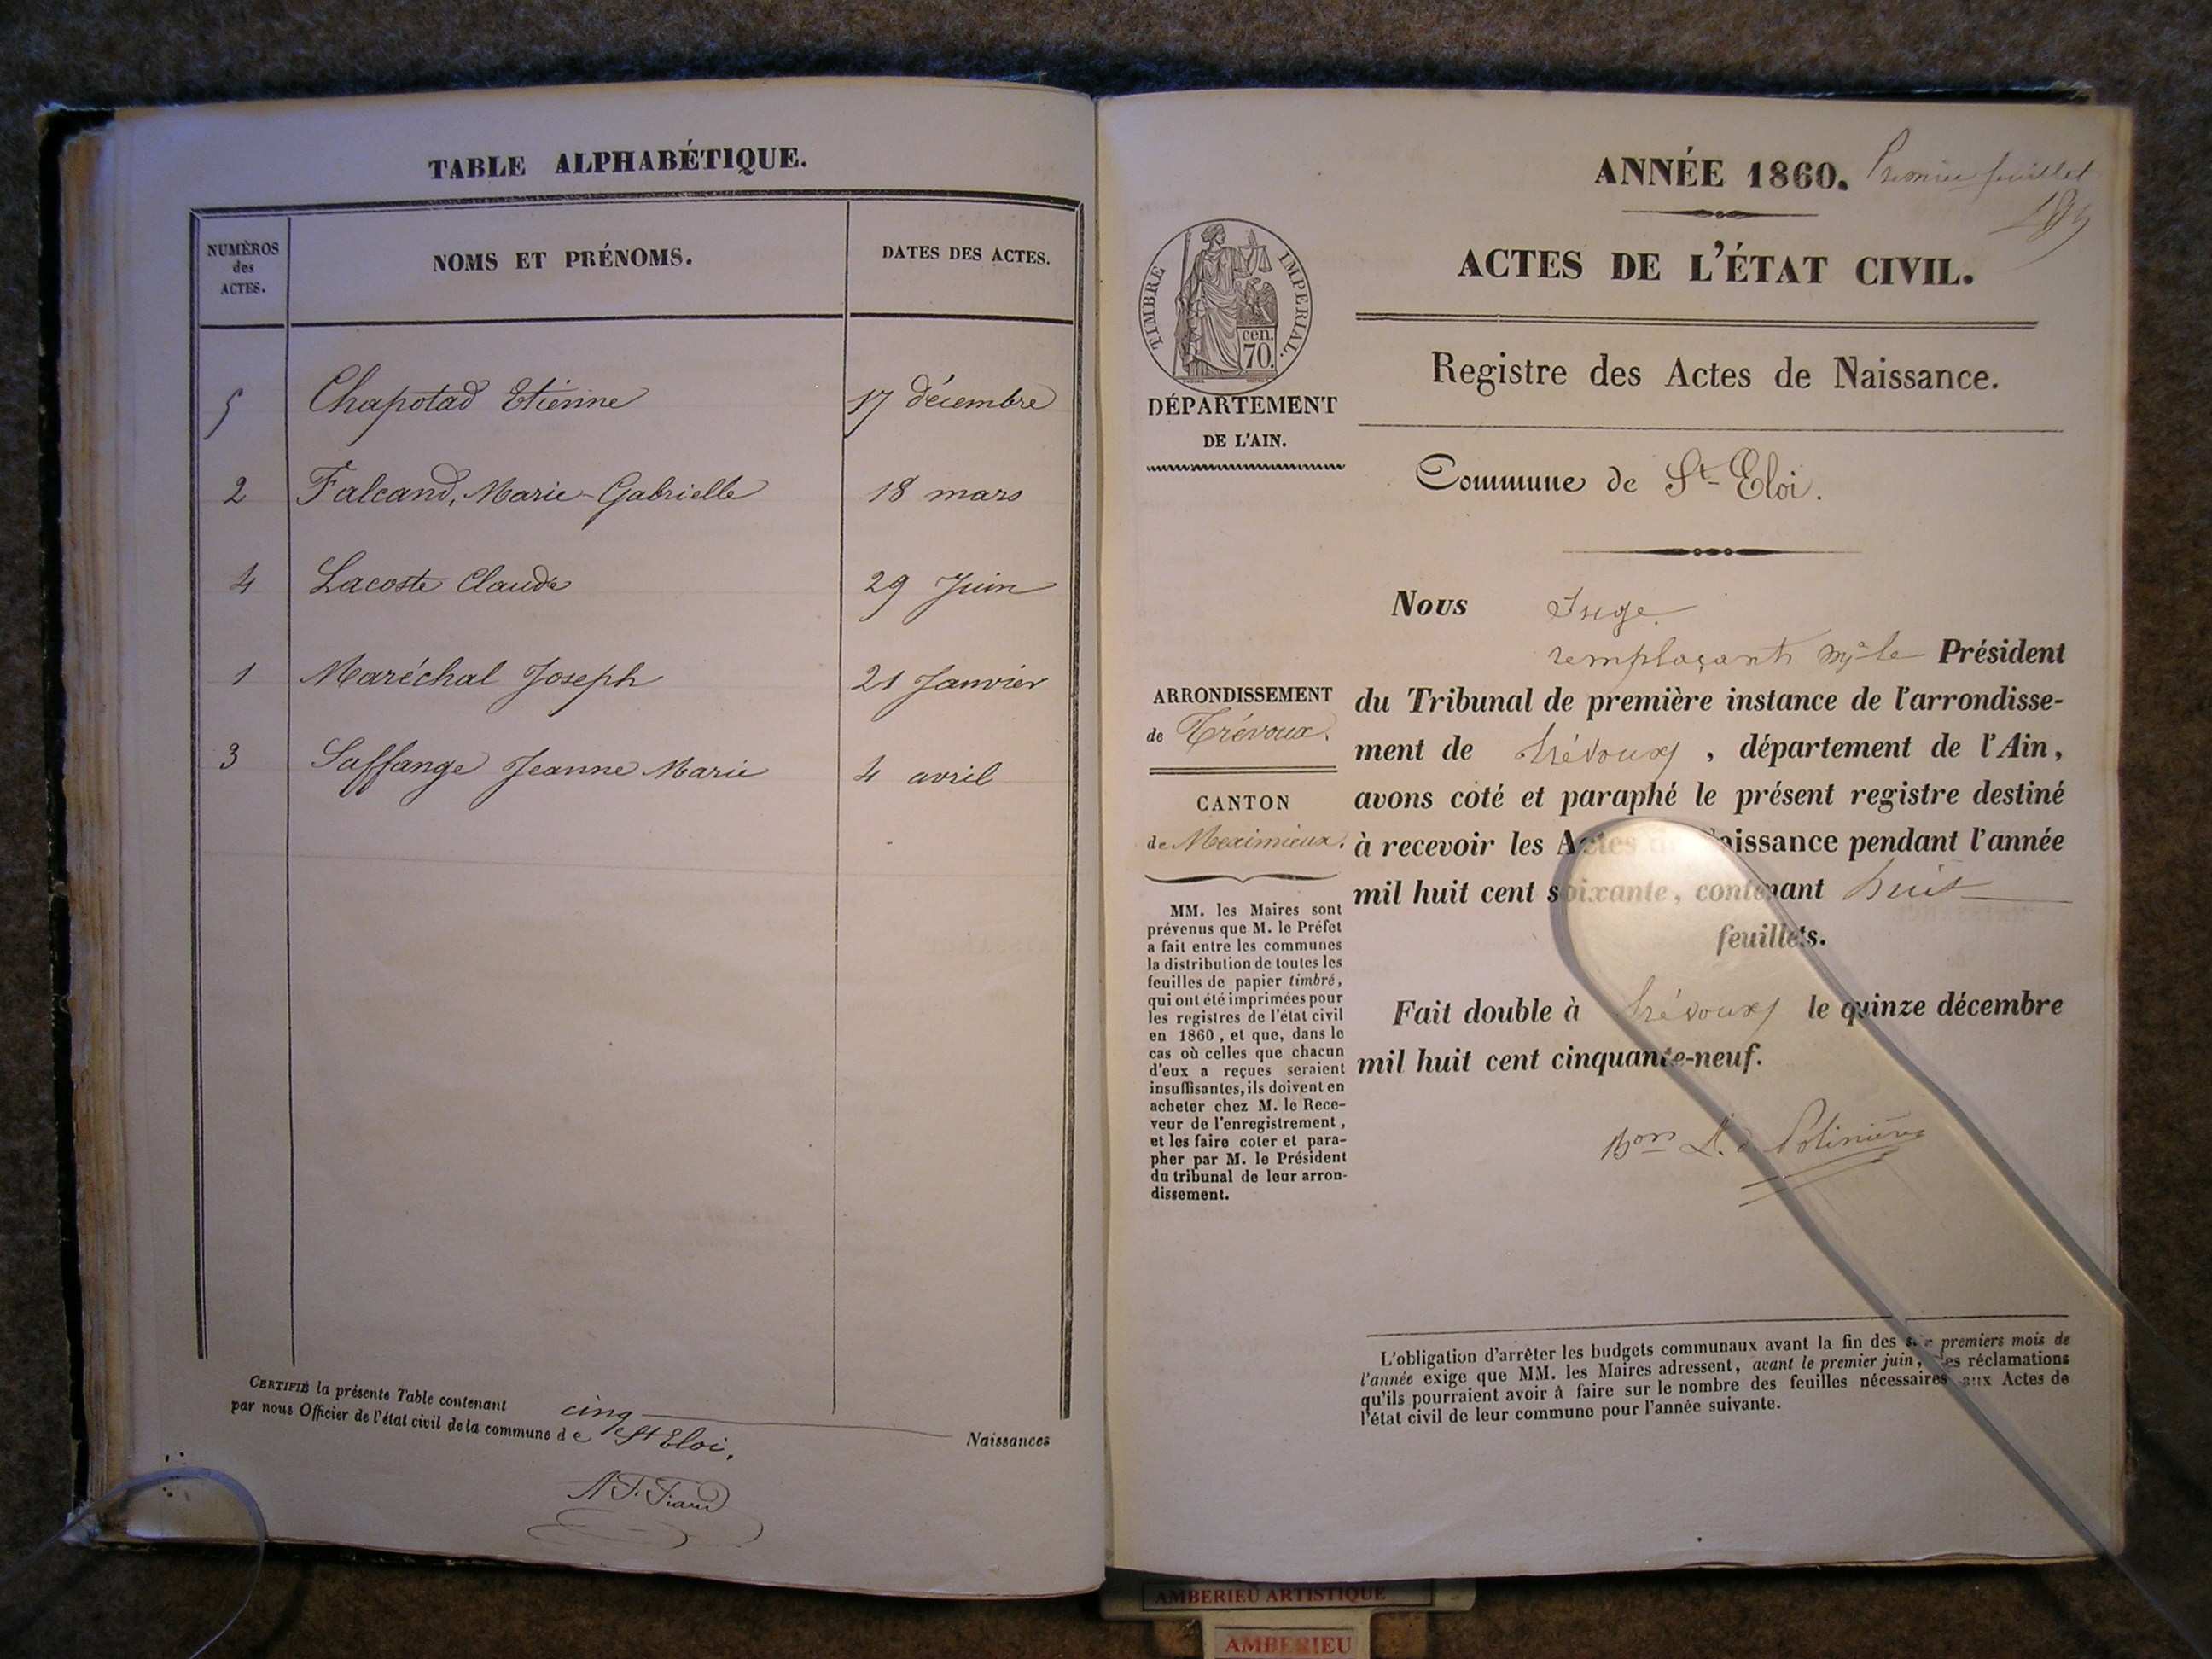 TABLE ALPHABÉTIQUE.
NUMÉROS
des
ACTES.
NOMS ET PRÉNOMS.
DATES DES ACTES.
5 Chapotad Etienne 17 décembre
2 Falcand, Marie-Gabrielle 18 mars
4 Lacoste Claude 29 Juin
1 Maréchal Joseph 21 Janvier
3 Saffange Jeanne Marie 4 avril
CERTIFIÉ la présente Table contenant cinq Naissances
par nous Officier de l'état civil de la commune de St Eloi.
ANNÉE 1860. Premier feuillet
ACTES DE L'ÉTAT CIVIL.
TIMBRE IMPERIAL.
cen.
70.
DÉPARTEMENT
DE L'AIN.
Registre des Actes de Naissance.
Commune de St-Eloi.
ARRONDISSEMENT
de Trévoux.
CANTON
de Meximieux.
MM. les Maires sont
prévenus que M. le Préfet
a fait entre les communes
la distribution de toutes les
feuilles de papier timbré,
qui ont été imprimées pour
les registres de l'état civil
en 1860, et que, dans le
cas où celles que chacun
d'eux a reçues seraient
insuffisantes, ils doivent en
acheter chez M. le Rece-
veur de l'enregistrement,
et les faire coter et para-
pher par M. le Président
du tribunal de leur arron-
dissement.
Nous Juge
remplaçant Mr le Président
du Tribunal de première instance de l'arrondisse-
ment de Trévoux, département de l'Ain,
avons coté et paraphé le présent registre destiné
à recevoir les Actes de Naissance pendant l'année
mil huit cent soixante, contenant huit
feuillets.
Fait double à Trévoux le quinze décembre
mil huit cent cinquante-neuf.
Bon L. d. Polinière
L'obligation d'arrêter les budgets communaux avant la fin des six premiers mois de
l'année exige que MM. les Maires adressent, avant le premier juin, les réclamations
qu'ils pourraient avoir à faire sur le nombre des feuilles nécessaires aux Actes de
l'état civil de leur commune pour l'année suivante.
AMBERIEU ARTISTIQUE
AMBERIEU